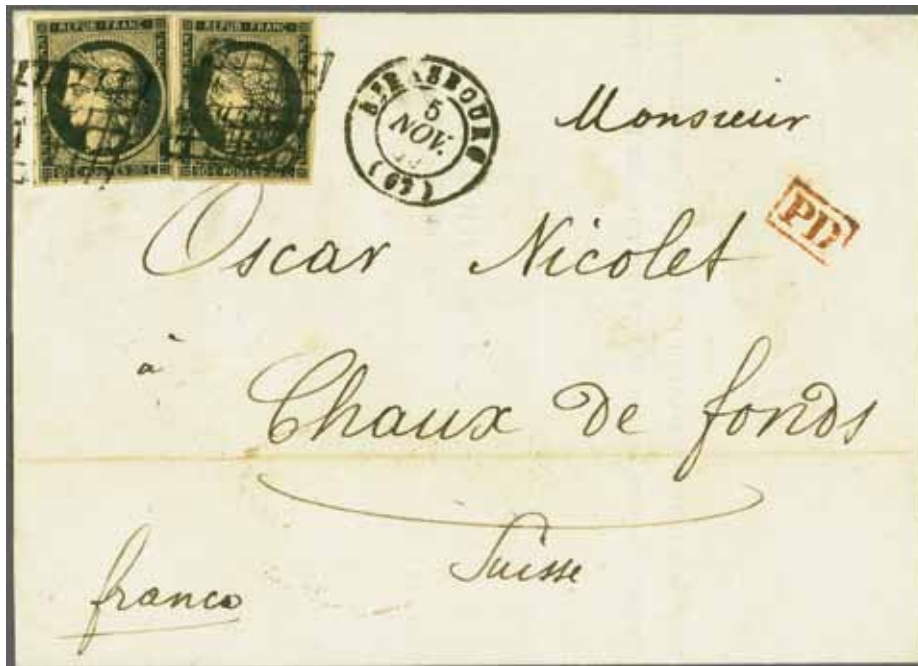 REPUB FRANC REPUB FRANC
STRASBOURG
5
NOV.
(67)
Monsieur
PD
Oscar Nicolet
à
Chaux de fonds
Suisse
franco